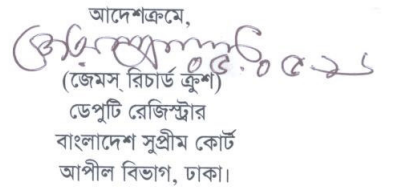 আদেশক্রমে,
০৫.০৫.২১
(জেমস্ রিচার্ড ক্রুশ)
ডেপুটি রেজিস্ট্রার
বাংলাদেশ সুপ্রীম কোর্ট
আপীল বিভাগ, ঢাকা।